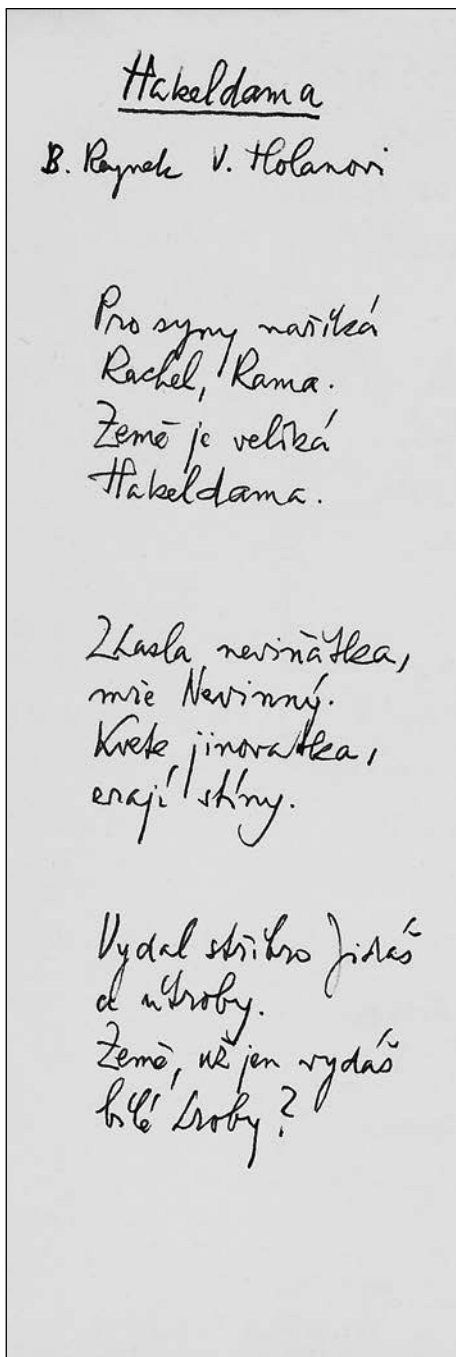 Hakeldama
B. Reynek V. Holanovi
Pro syny naříká
Rachel, Rama.
Země je veliká
Hakeldama.
Zhasla neviňátka,
mře Nevinný.
Kvete jinovatka,
zrají stíny.
Vydal stříbro Jidáš
a útroby.
Země, už jen vydáš
bílé hroby?